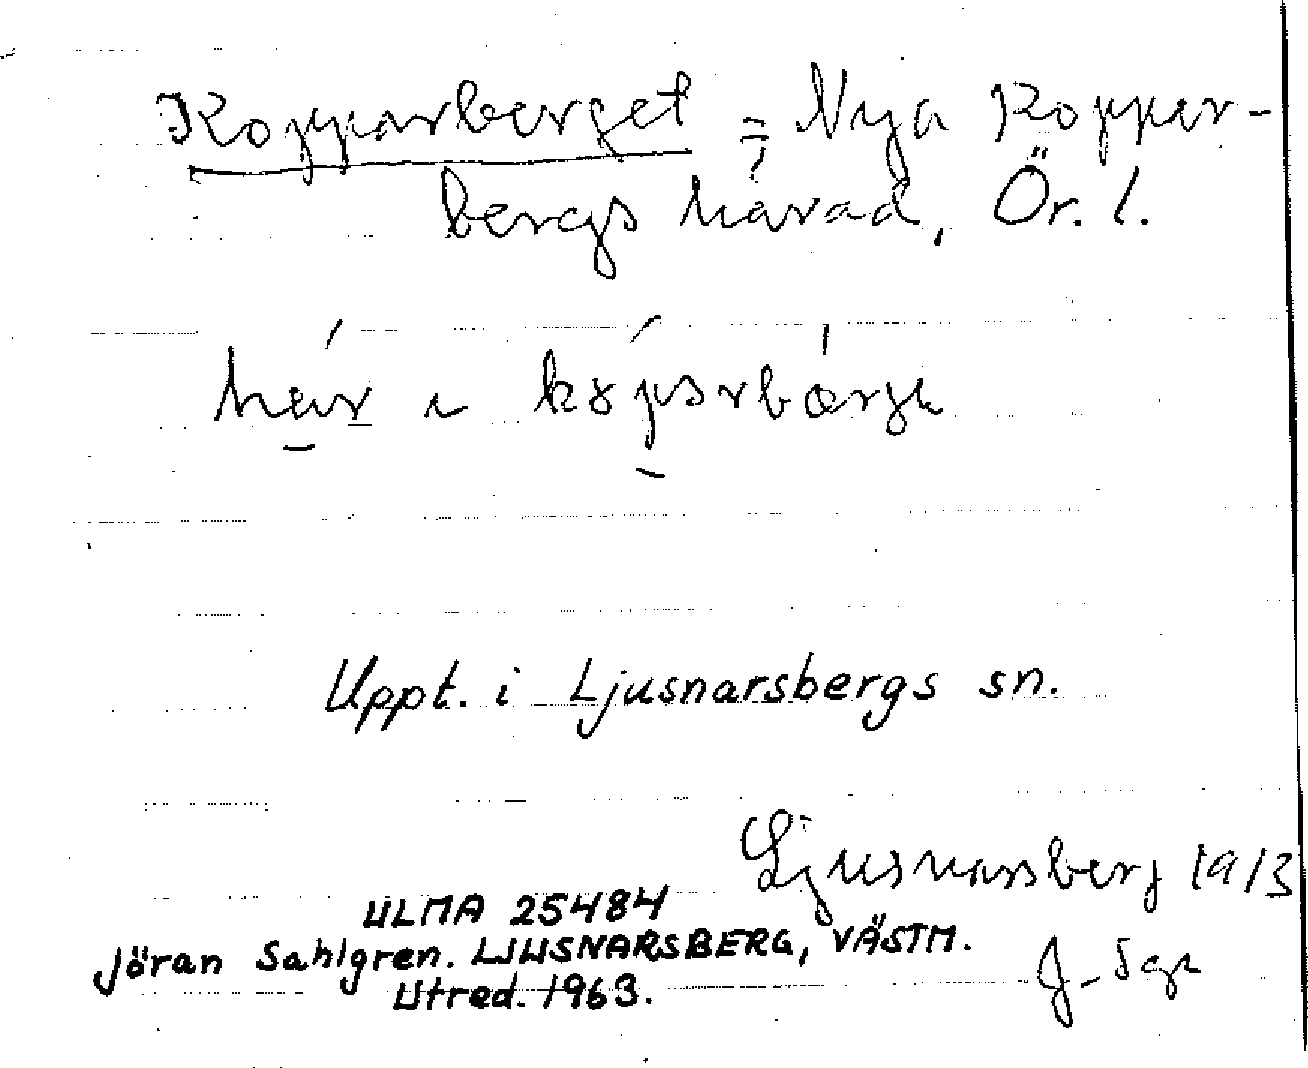 Kopparberget = Nya Koppar-
bergs härad, Ör. l.
hær i
Uppt. i Ljusnarsbergs sn.
Ljusnarsberg 1913
ULMA 25484
Jöran Sahlgren. LJUSNARSBERG, VÄSTM.
Utred. 1963.
J. Sgn